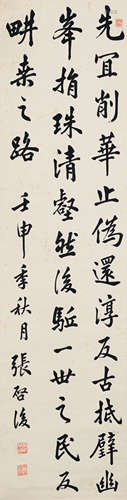 先宜削華止偽還淳反古抵璧幽
峯捐珠清壑然後驅一世之民反
畊桒之路 壬申季秋月 張啓後